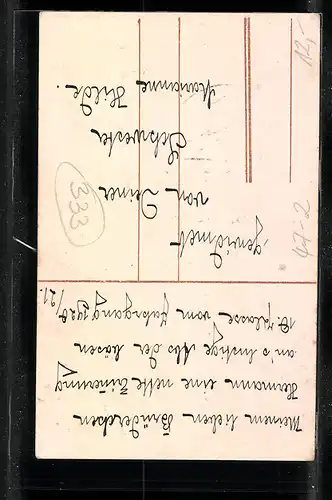 Meinem lieben Brüderchen
Hermann eine nette Erinnerung
an's lustige Abs der bösen
10. Klasse vom Jahrgang 1920/21.
gewidmet
von Deiner
Schwester
Marianne Hilde.
333
47-2
12,-